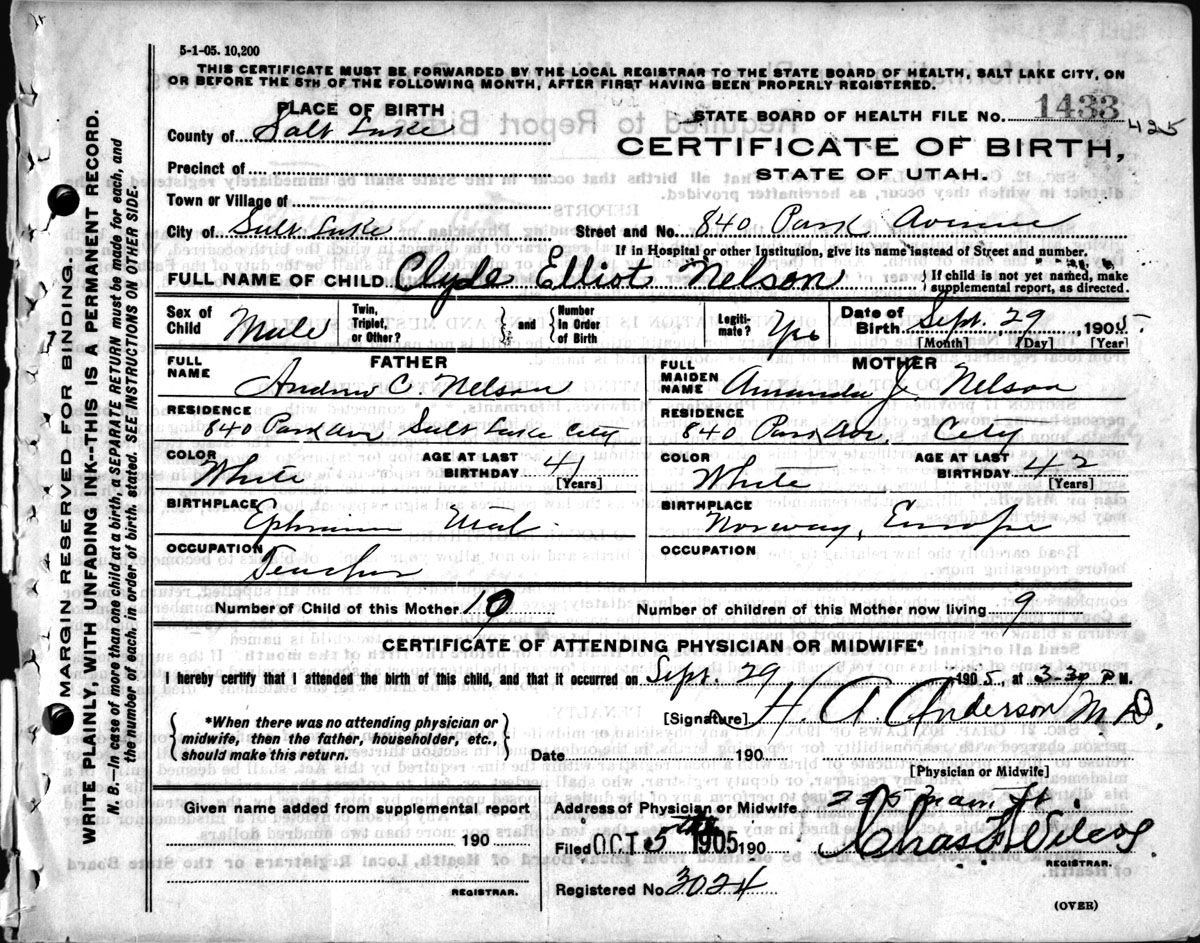 5-1-05. 10,200
THIS CERTIFICATE MUST BE FORWARDED BY THE LOCAL REGISTRAR TO THE STATE BOARD OF HEALTH, SALT LAKE CITY, ON
OR BEFORE THE 5TH OF THE FOLLOWING MONTH, AFTER FIRST HAVING BEEN PROPERLY REGISTERED.
PLACE OF BIRTH
STATE BOARD OF HEALTH FILE NO. 1433 425
County of Salt Lake
CERTIFICATE OF BIRTH,
STATE OF UTAH.
Precinct of
Town or Village of
City of Salt Lake Street and No. 840 Park Avenue
If in Hospital or other Institution, give its name instead of Street and number.
FULL NAME OF CHILD Clyde Elliot Nelson { If child is not yet named, make supplemental report, as directed.
Sex of Child Male Twin, Triplet, or Other? } and { Number in Order of Birth Legiti- mate? Yes Date of Birth Sept. 29, 1905
[Month] [Day] [Year]
FATHER
FULL NAME Andrew C. Nelson
RESIDENCE 840 Park Ave Salt Lake City
COLOR White AGE AT LAST BIRTHDAY 41 [Years]
BIRTHPLACE Ephraim Utah
OCCUPATION Teacher
MOTHER
FULL MAIDEN NAME Amanda J. Nelson
RESIDENCE 840 Park Ave City
COLOR White AGE AT LAST BIRTHDAY 42 [Years]
BIRTHPLACE Norway, Europe
OCCUPATION
Number of Child of this Mother 10 Number of children of this Mother now living 9
CERTIFICATE OF ATTENDING PHYSICIAN OR MIDWIFE*
I hereby certify that I attended the birth of this child, and that it occurred on Sept. 29 1905, at 3-30 P M.
{ *When there was no attending physician or midwife, then the father, householder, etc., should make this return. }
[Signature] H. A. Anderson M.D.
Date 190
[Physician or Midwife]
Given name added from supplemental report
190
REGISTRAR.
Address of Physician or Midwife 225 Main St
Filed OCT 5th 1905 190 Chas
REGISTRAR.
Registered No. 3024
(OVER)
MARGIN RESERVED FOR BINDING.
WRITE PLAINLY, WITH UNFADING INK--THIS IS A PERMANENT RECORD.
N. B.--In case of more than one child at a birth, a SEPARATE RETURN must be made for each, and
the number of each, in order of birth, stated. SEE INSTRUCTIONS ON OTHER SIDE.